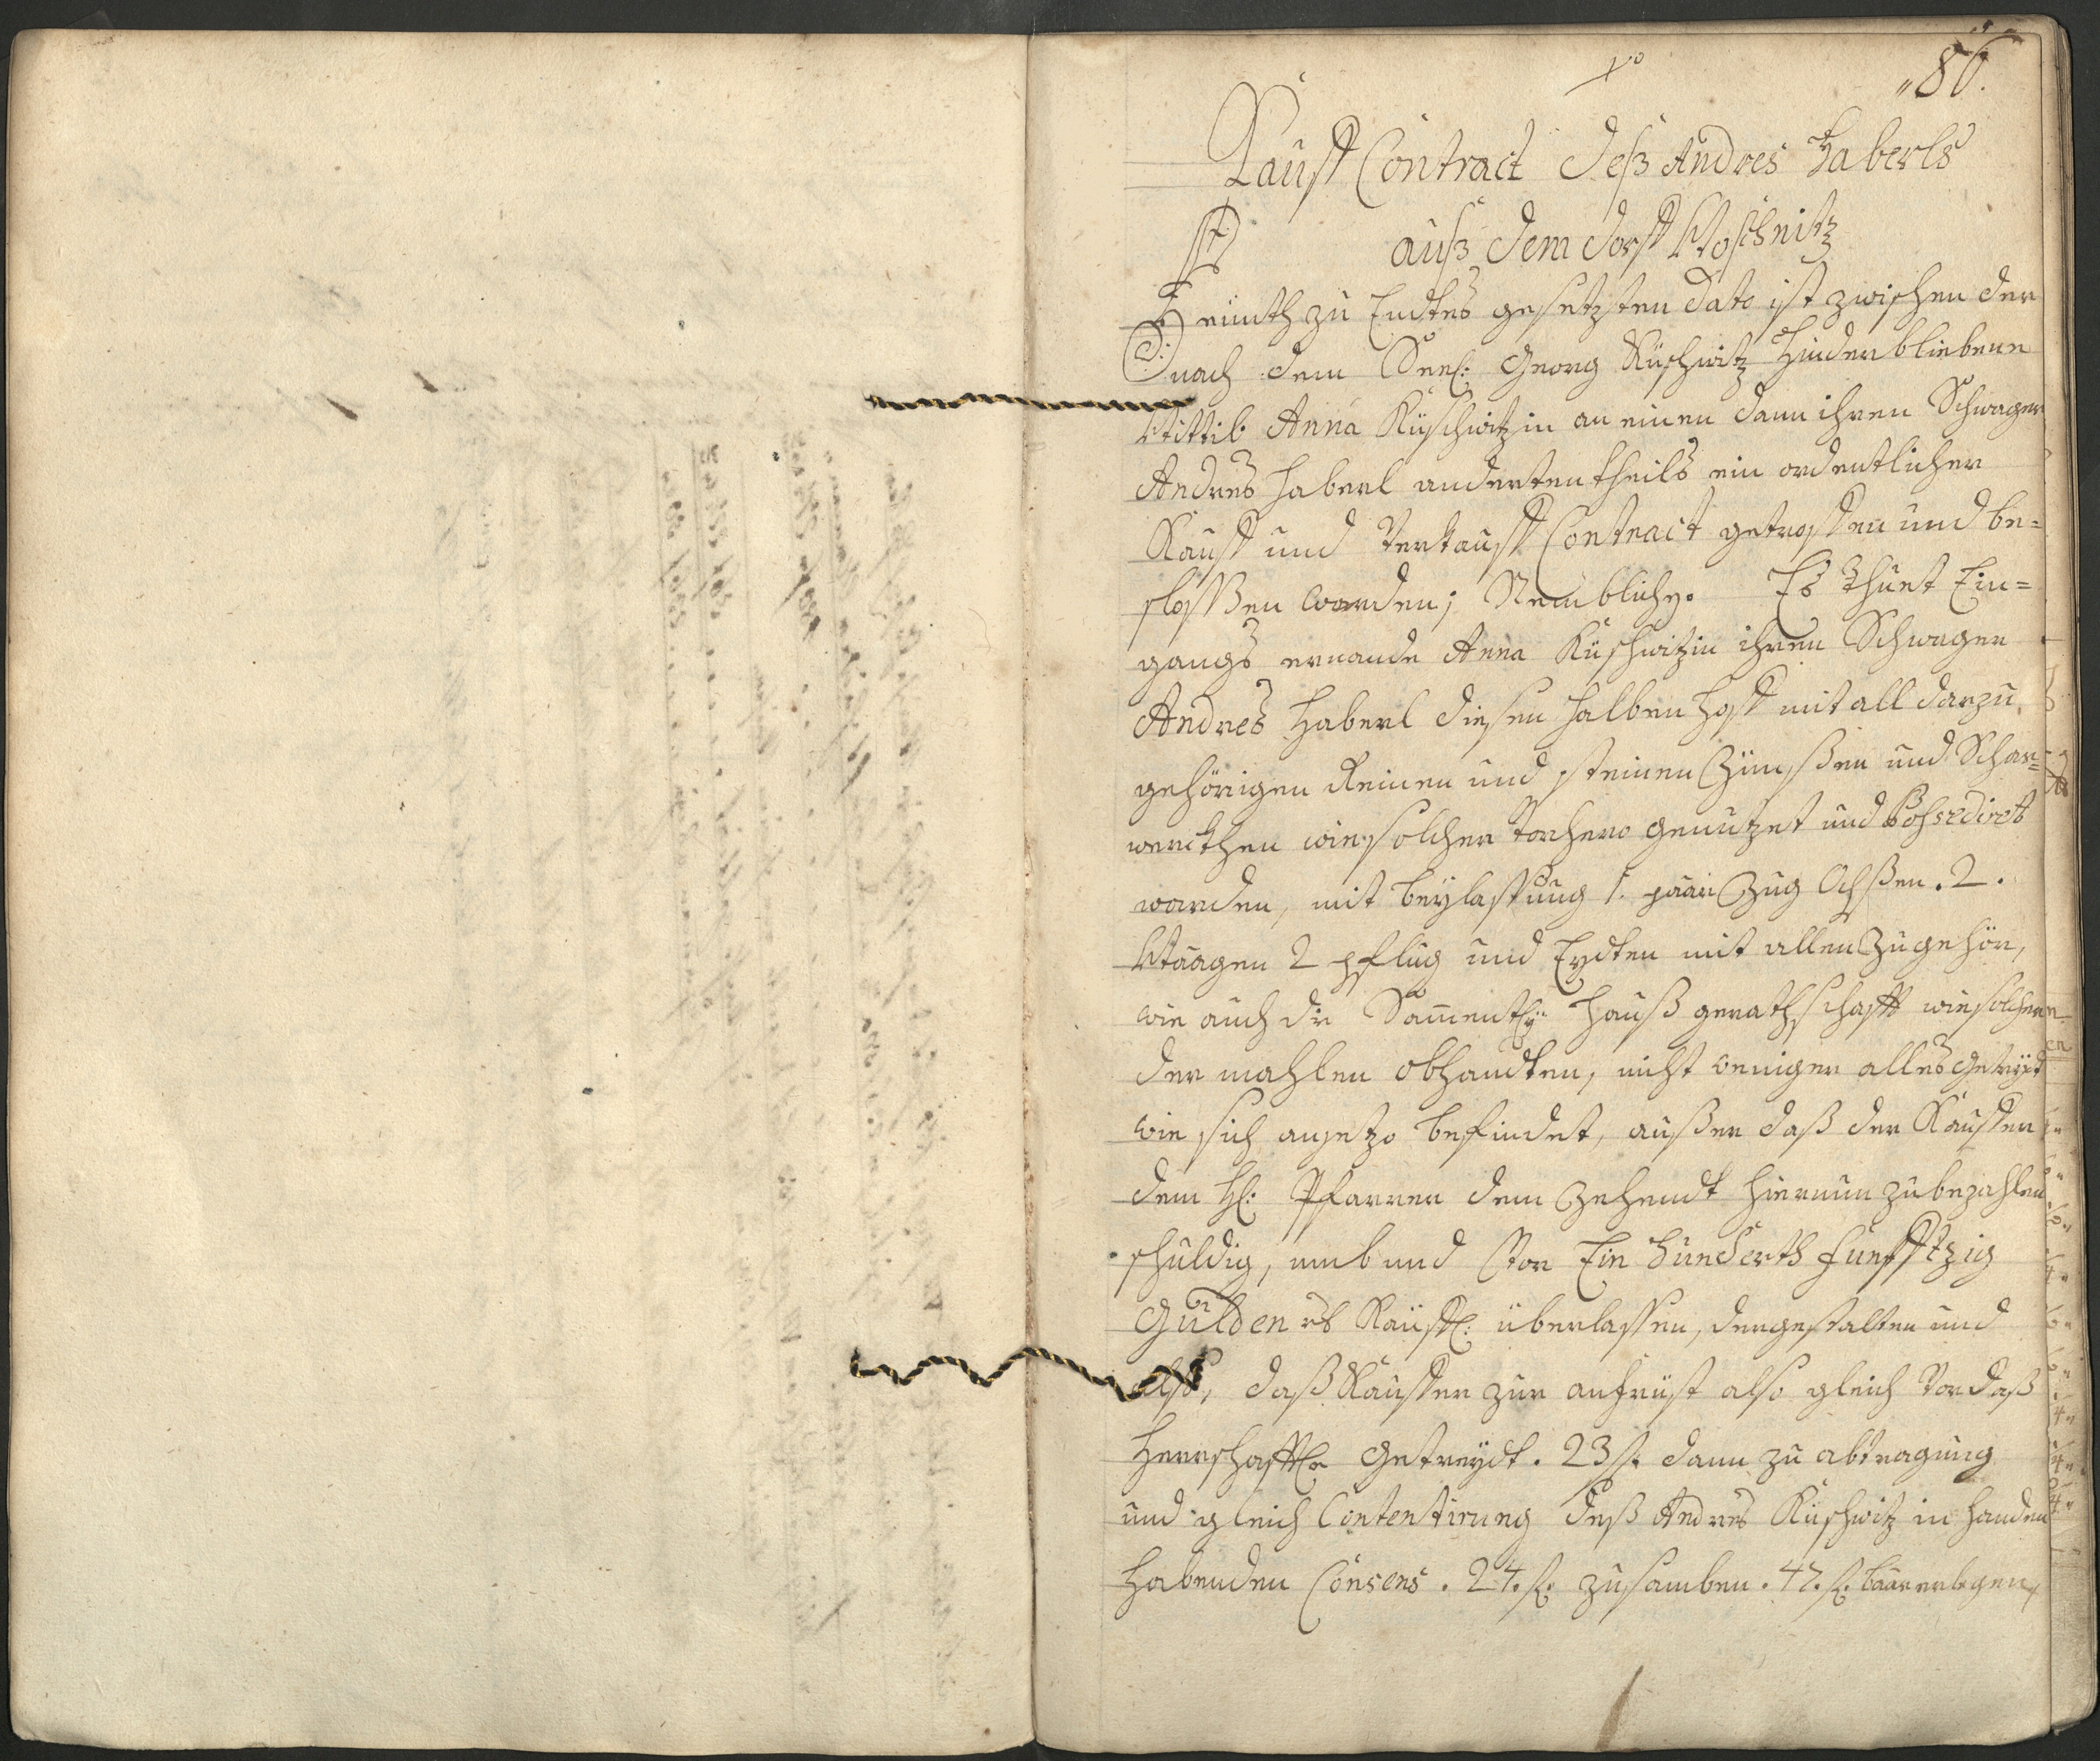 86.
Kauff Contract deß Andres Haberls
auß dem dorff Woschnitz
Heünth zu Endtes gesetzten Dato ist zwischen der
nach dem Seel: Georg Kuschwitz Hinderbliebene
Wittib Anna Kuschwitzin an einen dann ihren Schwager
Andres Haberl anderten theils ein ordentlicher
Kauff und Verkauff Contract getroffen und be=
schlossen worden; Nemblich. Es thuet Ein=
gangs ernande Anna Kuschwitzin ihren Schwager
Andres Haberl diesen halben Hoff mit all darzu
gehörigen Reinen und steinen Zünsßen und Schar=
werckhen wie solcher vorhero genutzet und Possediret
worden, mit beylassung 1. paar Zug Ochßen. 2.
Waagen 2 pflug und Eydten mit allen Zugehör,
wie auch die Sammentl: Hauß gerathschafft wie solche
der mahlen obhandten, nicht weniger alles getreydt
wie sich anjetzo befindet, außer daß der Kauffer
dem H: Pfarrer dem Zehendt hiervun zu bezahlen
schuldig, umb und Vor Ein hunderth funfftzig
Gulden Kauff: überlassen, dergestalten und
also, daß Kauffer zur anfrist also gleich Vor daß
Herrschafft: Getreydt. 23 f. dann zu abtragung
und gleich Contentirung deß Andres Kuschwitz in handen
habenden Consens. 24. f. zusamben. 47. f. baar erlegen,